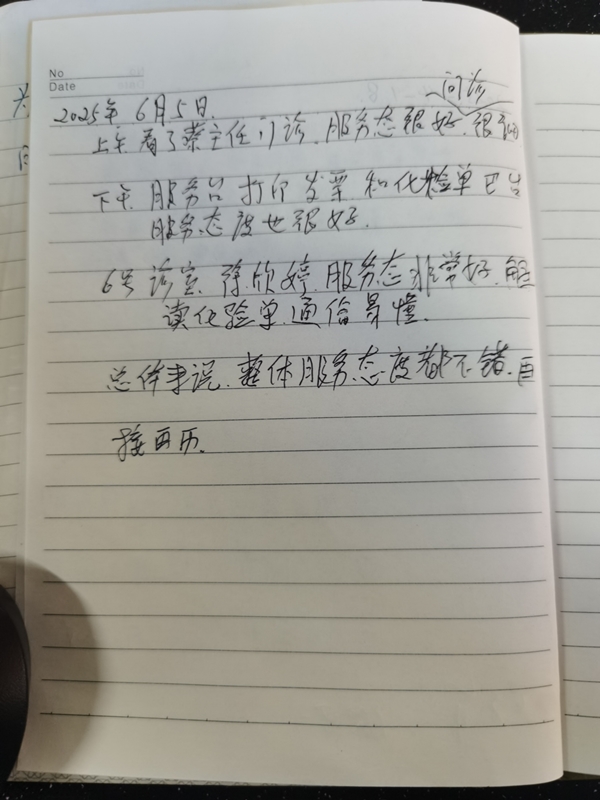 No
Date
问诊
2025年 6月5日.
上午 看了蔡主任门诊. 服务态很好. 很细
下午. 服务台 打印 发票 和化检单 巴台
服务态度也很好.
6号 诊室. 徐欣婷. 服务态非常好. 解
读化验单. 通俗易懂.
总体来说. 整体服务态度都不错. 再
接再历.